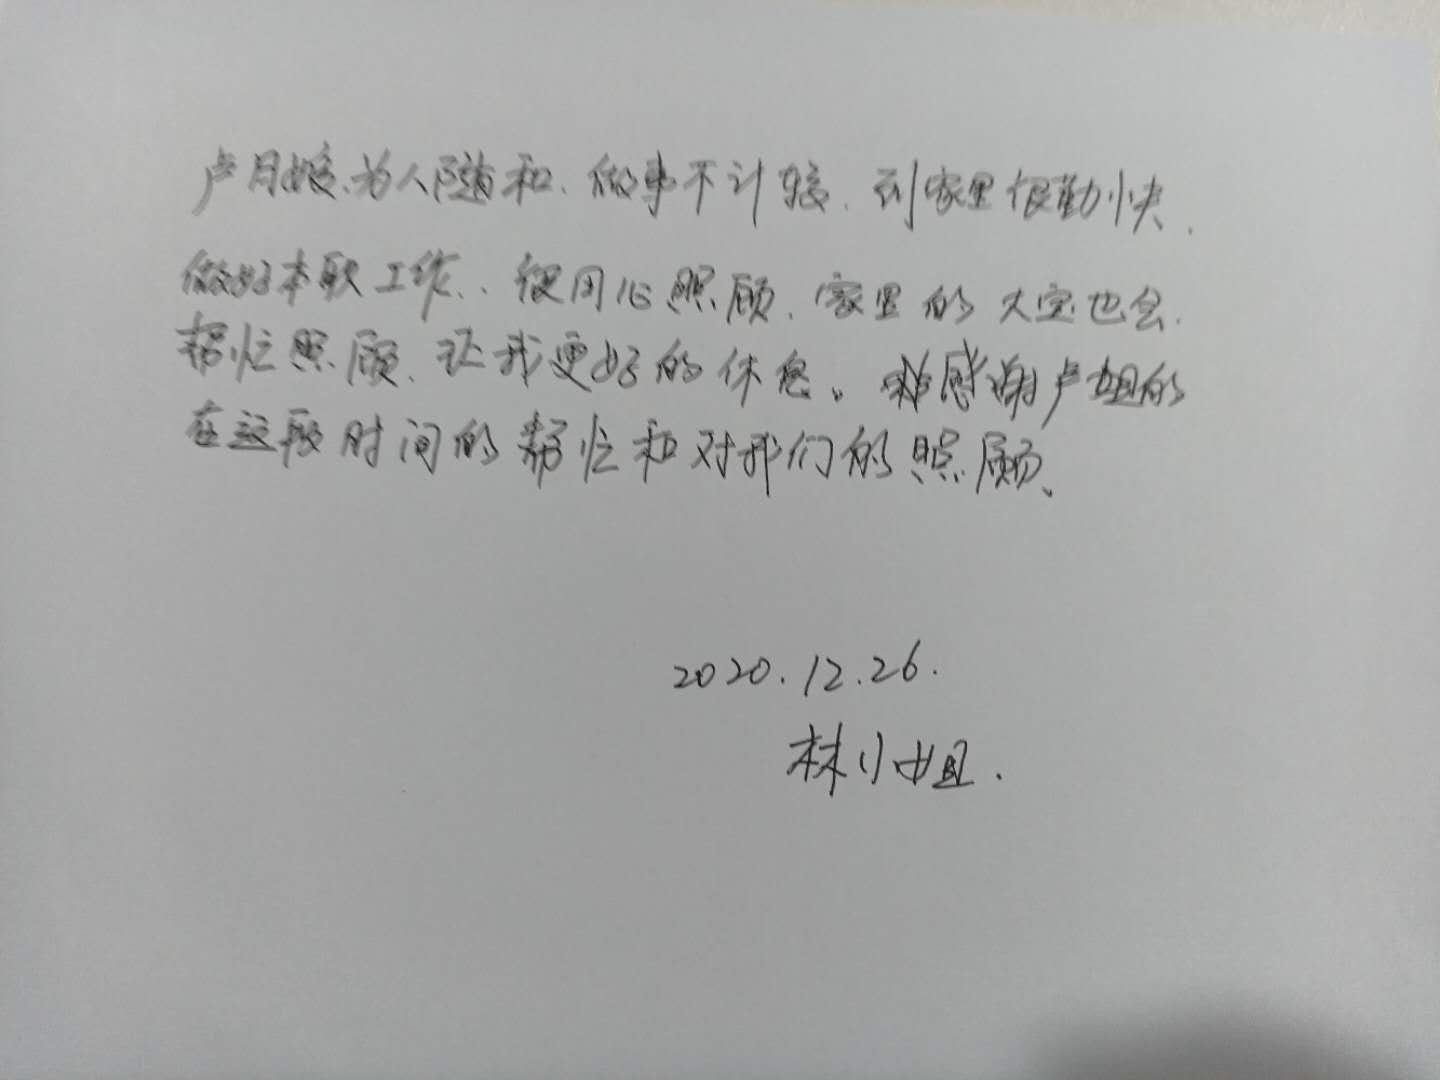 卢月嫂、为人随和、做事不计较、到家里很勤快、
做好本职工作、很用心照顾、家里的大宝也会
帮忙照顾、让我更好的休息。感谢卢姐的
在这段时间的帮忙和对我们的照顾、
2020.12.26.
林小姐.